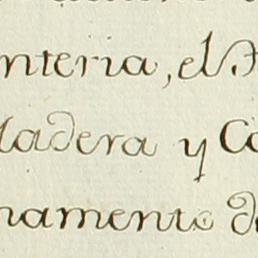 nteria, el
Madera y Co
namento de